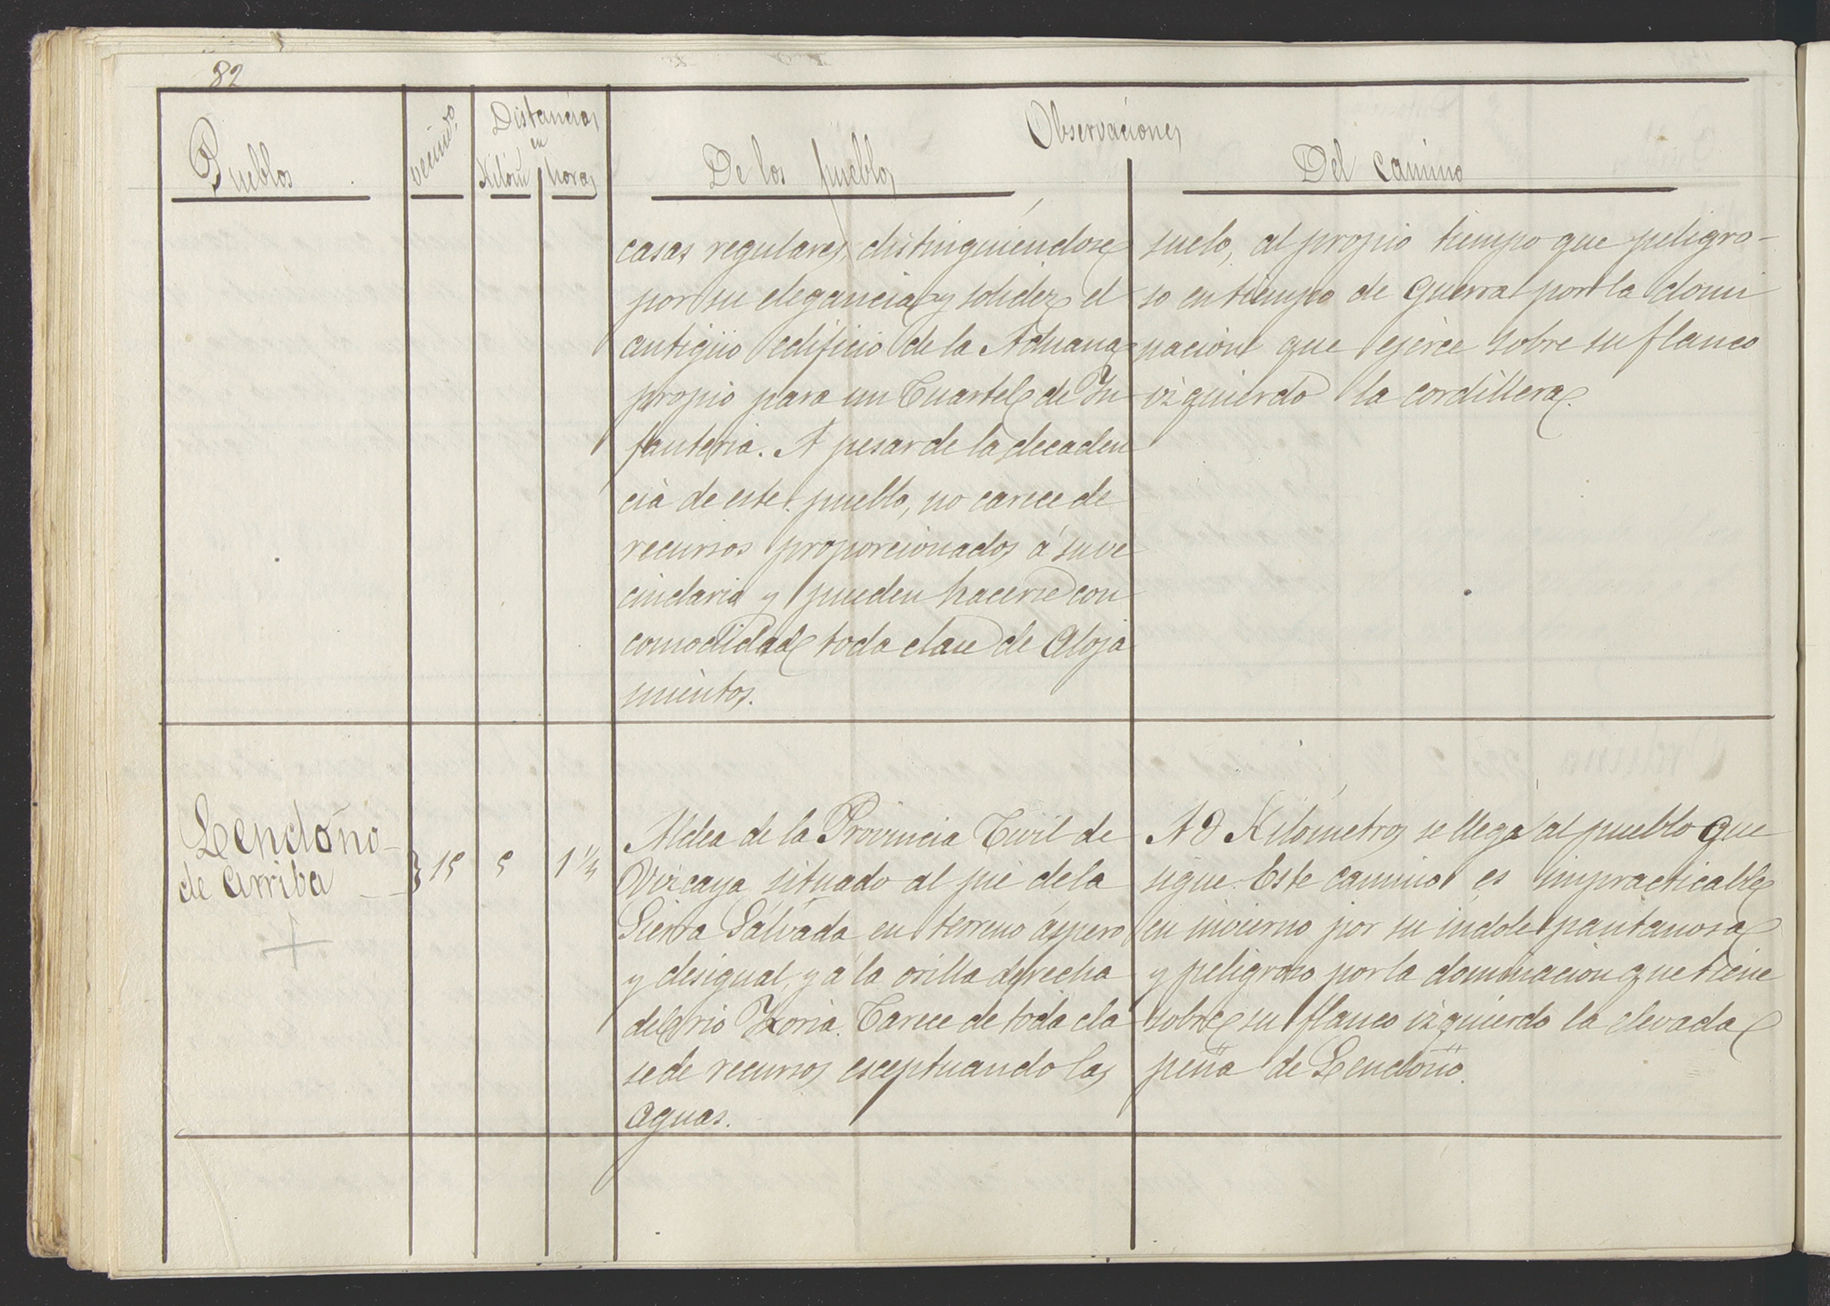 82
Pueblos
vecindo.
Distancias
en
Kilóm
horas
Observaciones
De los pueblos
Del camino
casas regulares, distinguiéndose
por su elegancia y solidez el
antigüo edificio de la Aduana
propio para un Cuartel de In
fanteria. A pesar de la decaden
cia de este pueblo, no carece de
recursos proporcionados á su ve
cindario y pueden hacerse con
comodidad toda clase de aloja
mientos.
suelo, al propio tiempo que peligro-
so en tiempo de guerra por la domi
nacion que ejerce sobre su flanco
izquierdo la cordillera.
Lendoño
de arriba
15
5
1 1/4
Aldea de la Provincia Civil de
Vizcaya situado al pié de la
Sierra Salvada en terreno áspero
y desigual, y á la orilla derecha
del rio Izoria. Carece de toda cla
se de recursos esceptuando las
aguas.
A 8 Kilómetros se llega al pueblo que
sigue. Este camino es impracticable
en invierno por su indole pantanosa
y peligroso por la dominacion que tiene
sobre su flanco izquierdo la elevada
peña de Lendoño.